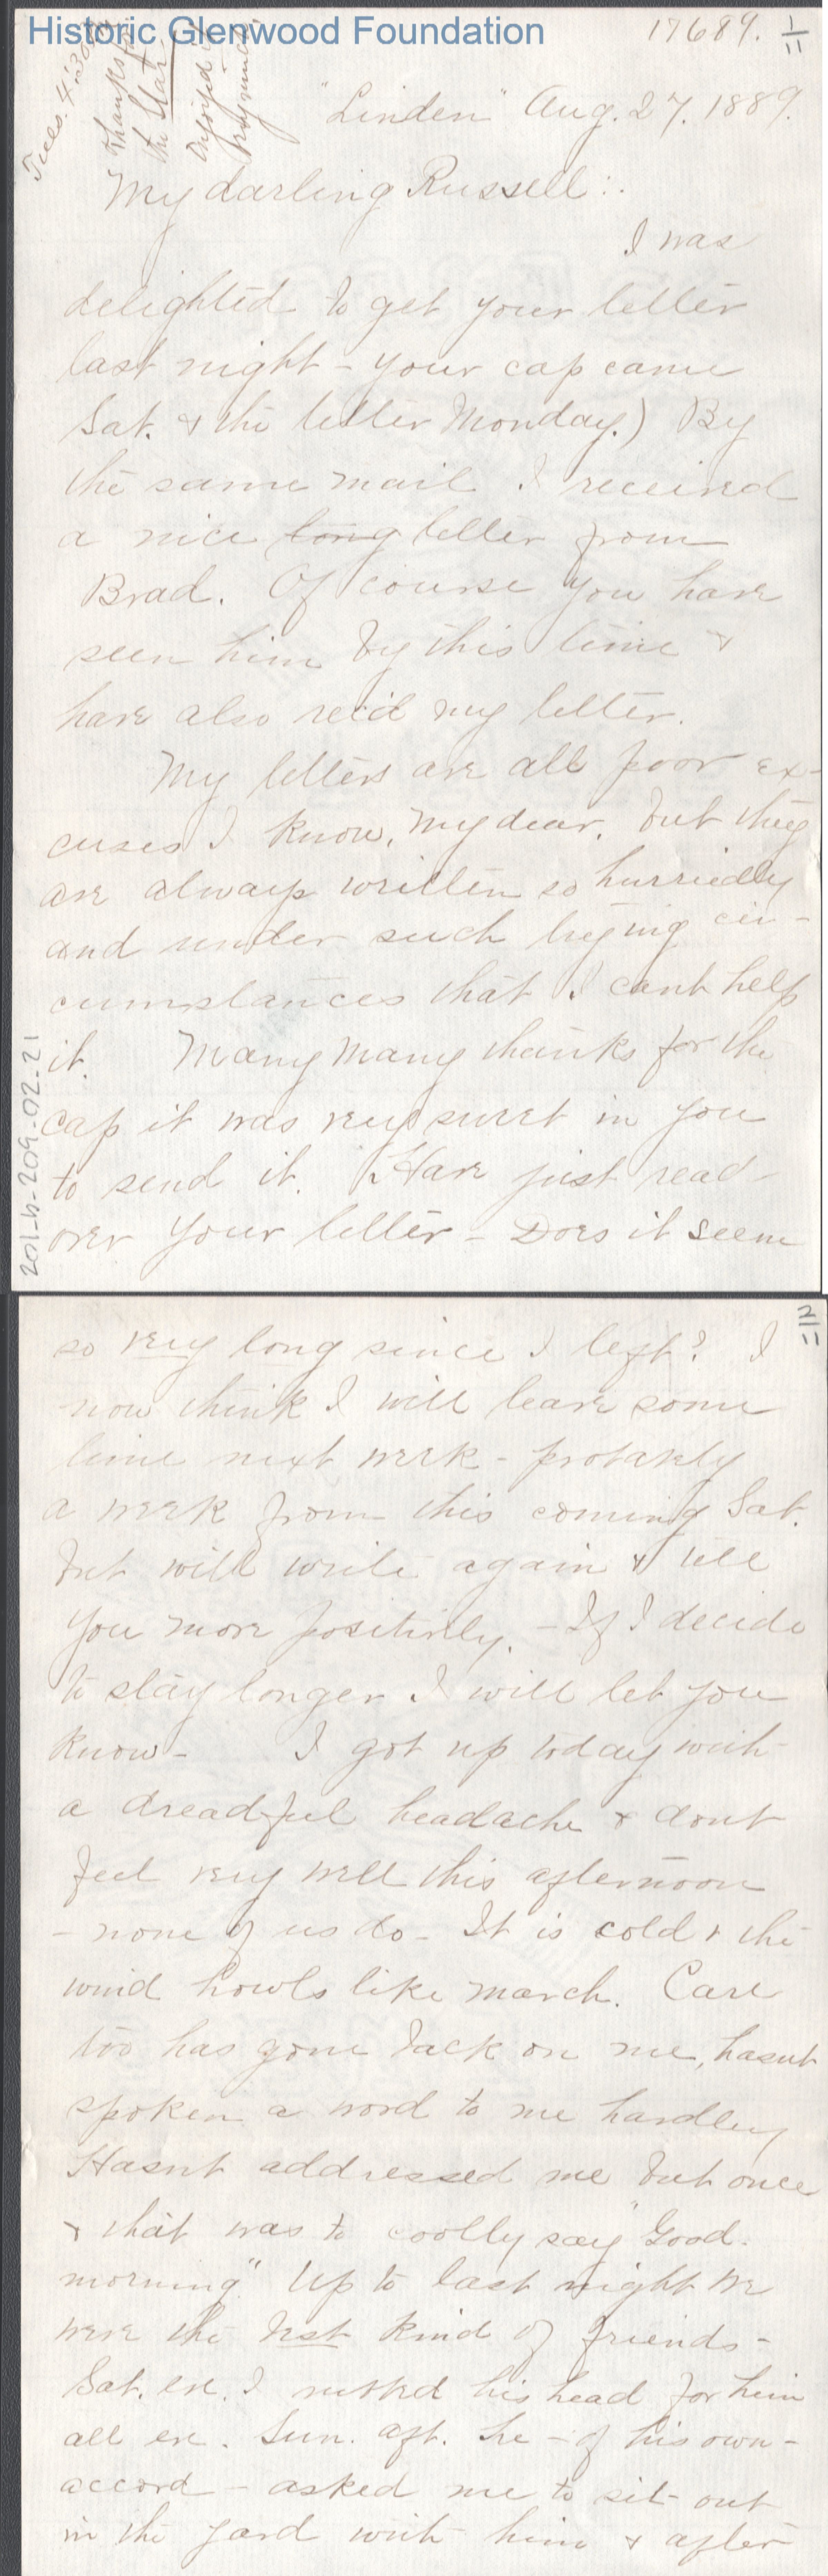 Historic Glenwood Foundation
17689. 1/11
Tues. 4:30
Thanks for
the Star.
Enjoyed it
very much.
"Linden" Aug. 27. 1889.
My darling Russell:.
I was
delighted to get your letter
last night - your cap came
Sat. & the letter Monday.) By
the same mail I received
a nice long letter from
Brad. Of course you have
seen him by this time &
have also rec'd my letter.
My letters are all poor ex-
cuses I know, my dear, but they
are always written so hurriedly
and under such trying cir-
cumstances that I cant help
it. Many many thanks for the
cap it was very sweet in you
to send it. Have just read
over your letter - Does it seem
201-b-209-02-21
2/11
so very long since I left? I
now think I will leave some
time next week - probably
a week from this coming Sat.
but will write again & tell
you more positively. - If I decide
to stay longer I will let you
know - I got up today with
a dreadful headache & dont
feel very well this afternoon
- none of us do - It is cold & the
wind howls like march. Carl
too has gone back on me, hasnt
spoken a word to me hardly
Hasnt addressed me but once
& that was to coolly say "Good-
morning" Up to last night we
were the best kind of friends -
Sat. eve. I rubbed his head for him
all eve. Sun. aft. he - of his own -
accord - asked me to sit out
in the yard with him & after